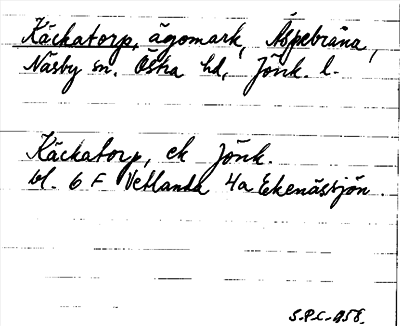 Käckatorp, ägomark, Äspebräna,
Näsby sn. Östra hd, Jönk. l.
Käckatorp, ek Jönk.
bl. 6 F Vetlanda 4a Ekenässjön.
S.P.C. 1958.